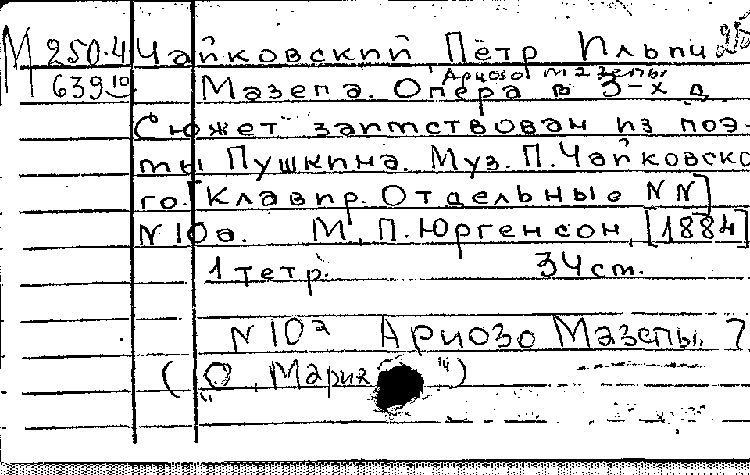 М 250.4 Чайковский Пётр Ильич 25
639 10 "Ариозо Мазепы"
Мазепа. Опера в 3-х д.
Сюжет заимствован из поэ-
мы Пушкина. Муз. П. Чайковско
го. [Клавир. Отдельные NN]
N 10а. М., П. Юргенсон, [1884]
1 тетр. 34 cm.
N 10а Ариозо Мазепы. 7
("О, Мария")